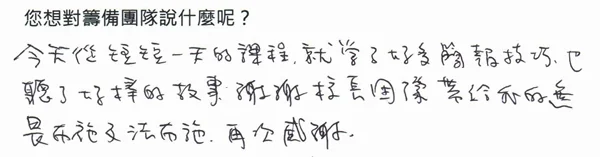 您想對籌備團隊說什麼呢？
今天從短短一天的課程,就學了好多簡報技巧、也
聽了好棒的故事.謝謝校長團隊帶給我的無
畏布施及法布施.再次感謝.